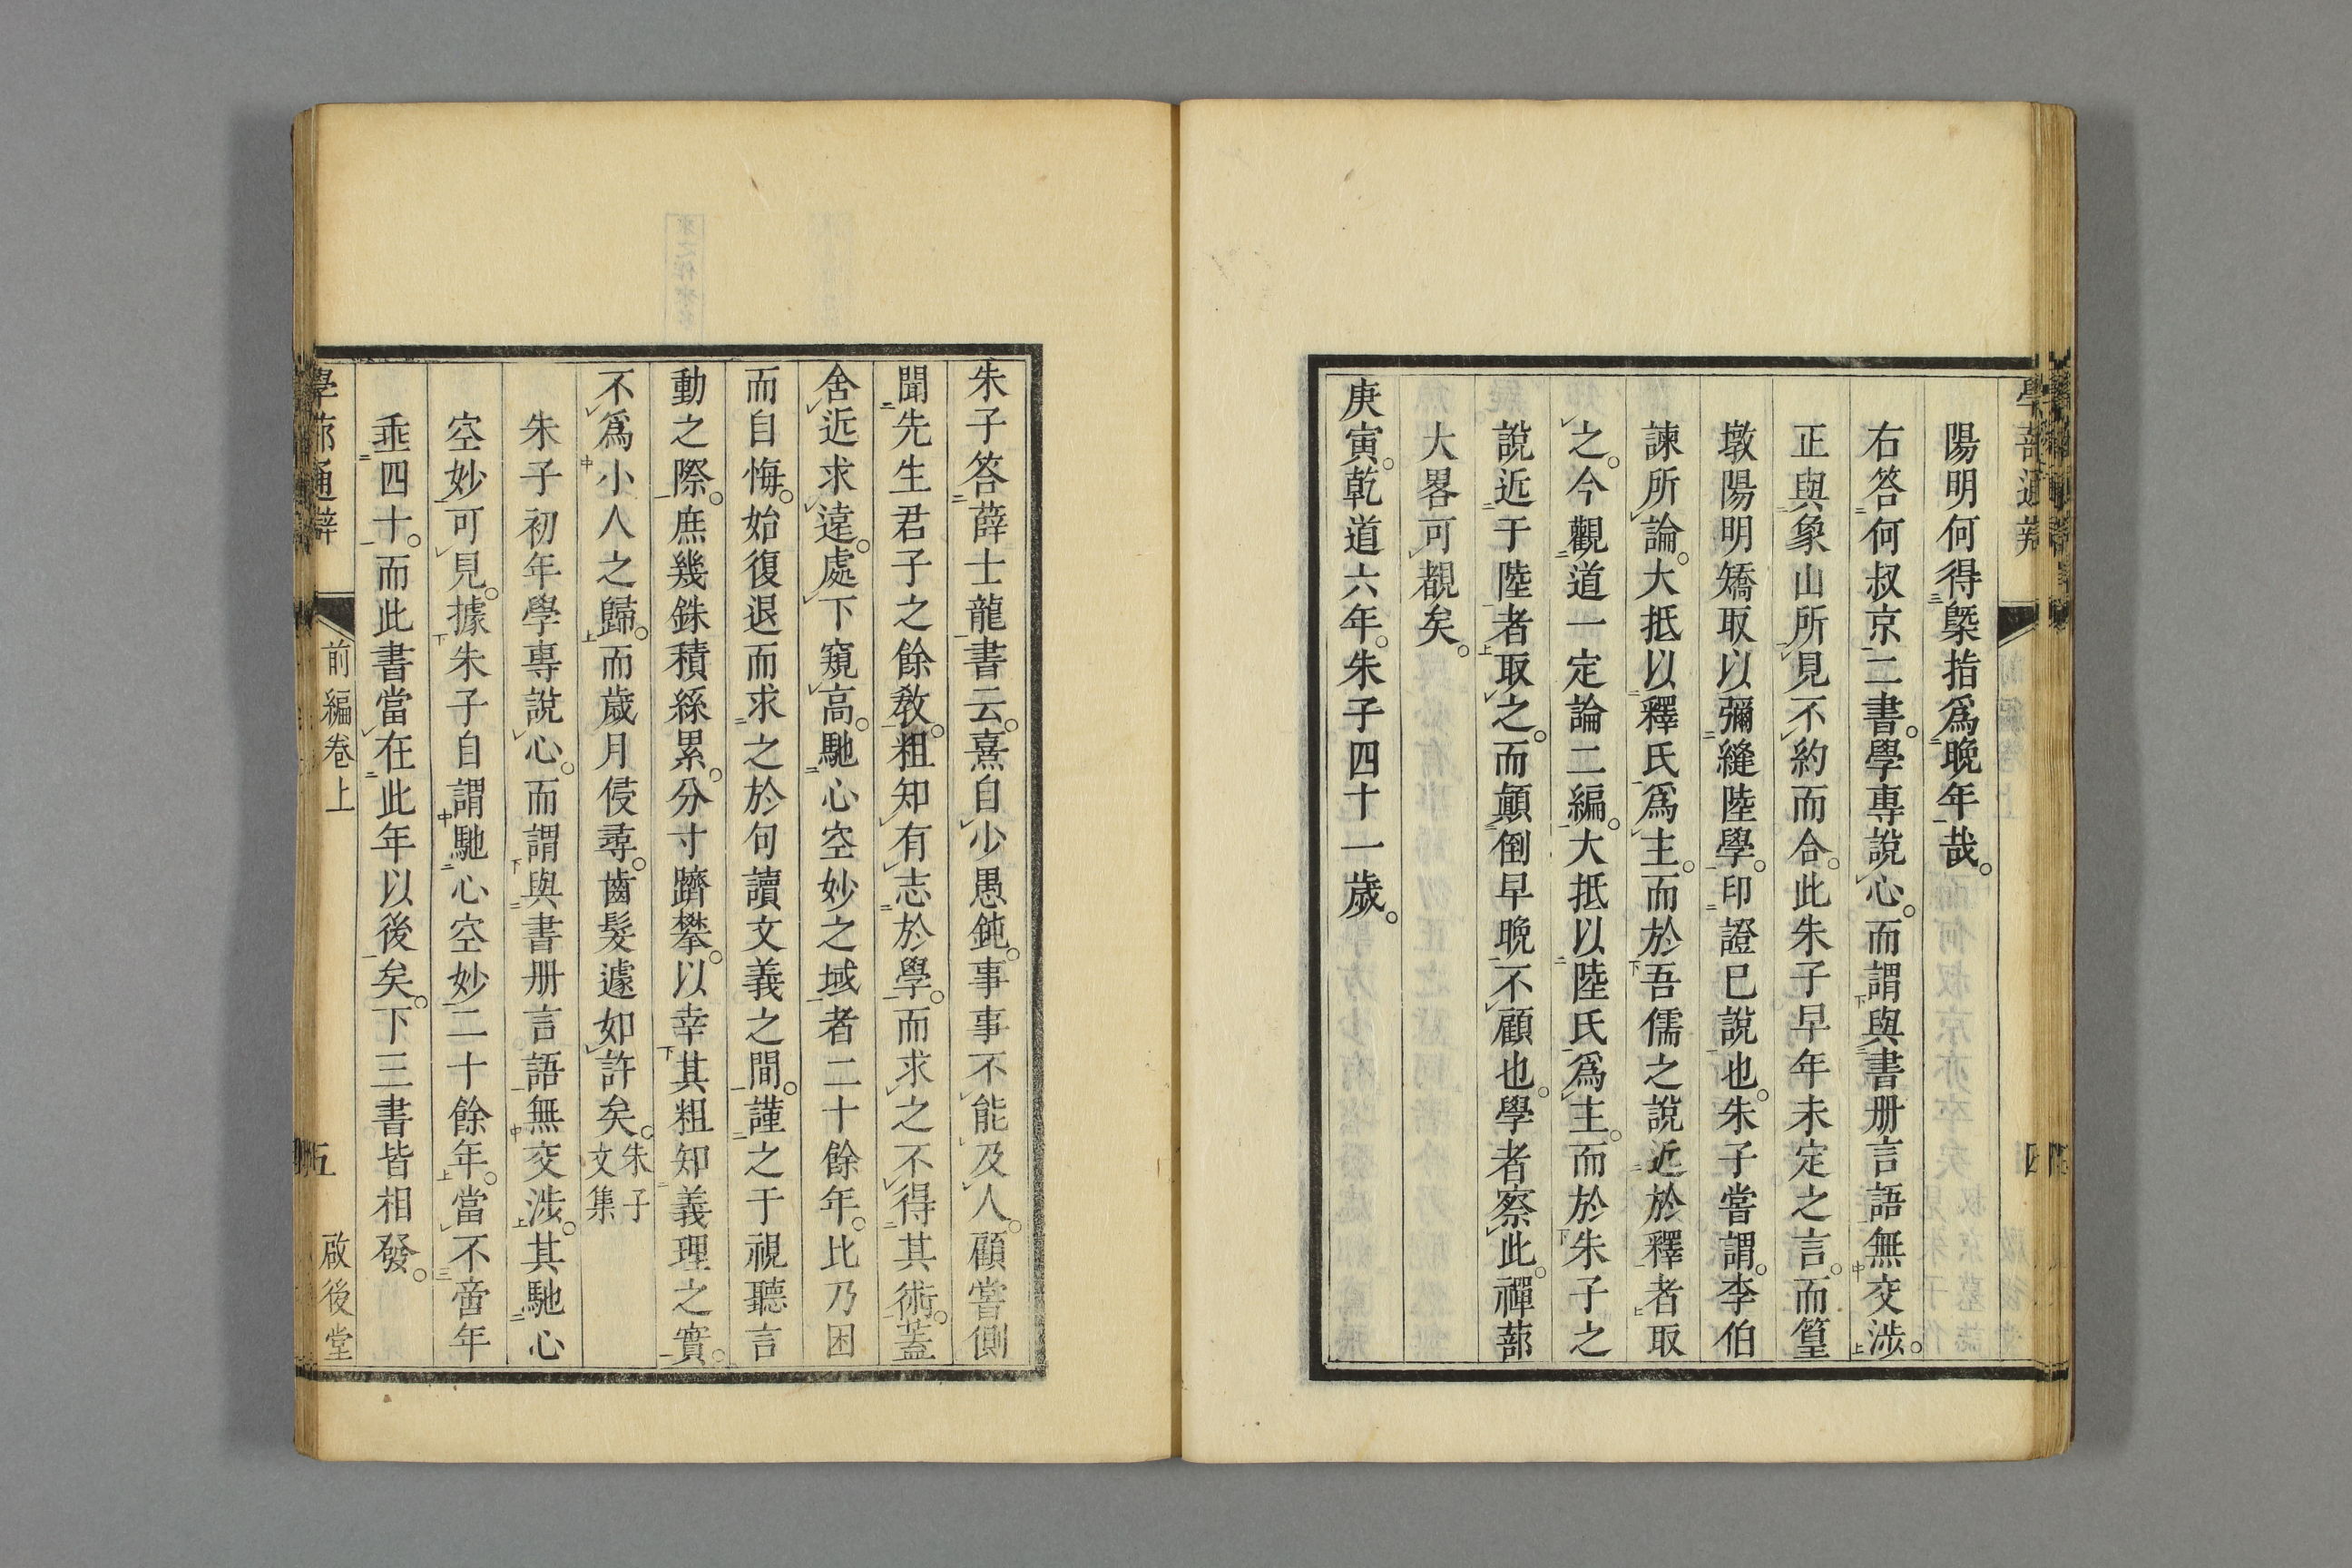 學蔀通辨
四
陽明何得槩指爲晩年哉。
右答何叔京二書。學專說心。而謂與書册言語無交涉。
正與象山所見不約而合。此朱子早年未定之言。而篁
墩陽明矯取以彌縫陸學。印證已說也。朱子嘗謂。李伯
諫所論。大抵以釋氏爲主。而於吾儒之說近於釋者取
之。今觀道一定論二編。大抵以陸氏爲主。而於朱子之
說近于陸者取之。而顚倒早晩不顧也。學者察此。禪蔀
大畧可覩矣。
庚寅。乾道六年。朱子四十一歲。
朱子答薛士龍書云。熹自少愚鈍。事事不能及人。顧嘗側
聞先生君子之餘敎。粗知有志於學。而求之不得其術。蓋
舍近求遠。處下窺高。馳心空妙之域者二十餘年。比乃困
而自悔。始復退而求之於句讀文義之間。謹之于視聽言
動之際。庶幾銖積絲累。分寸躋攀。以幸其粗知義理之實。
不爲小人之歸。而歲月侵尋。齒髮遽如許矣。朱子文集
朱子初年學專說心。而謂與書册言語無交涉。其馳心
空妙可見。據朱子自謂馳心空妙二十餘年。當不啻年
垂四十。而此書當在此年以後矣。下三書皆相發。
學蔀通辨
前編卷上
五
啟後堂